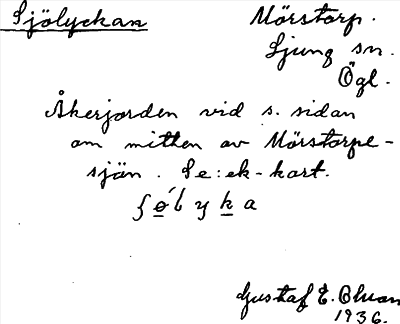 Sjölyckan
Mörstorp.
Ljung sn.
Ögl.
Åkerjorden vid s. sidan
om mitten av Mörstorpe-
sjön. Se: ek-kart.
ʃǿlyka
Gustaf E. Bluom
1936.